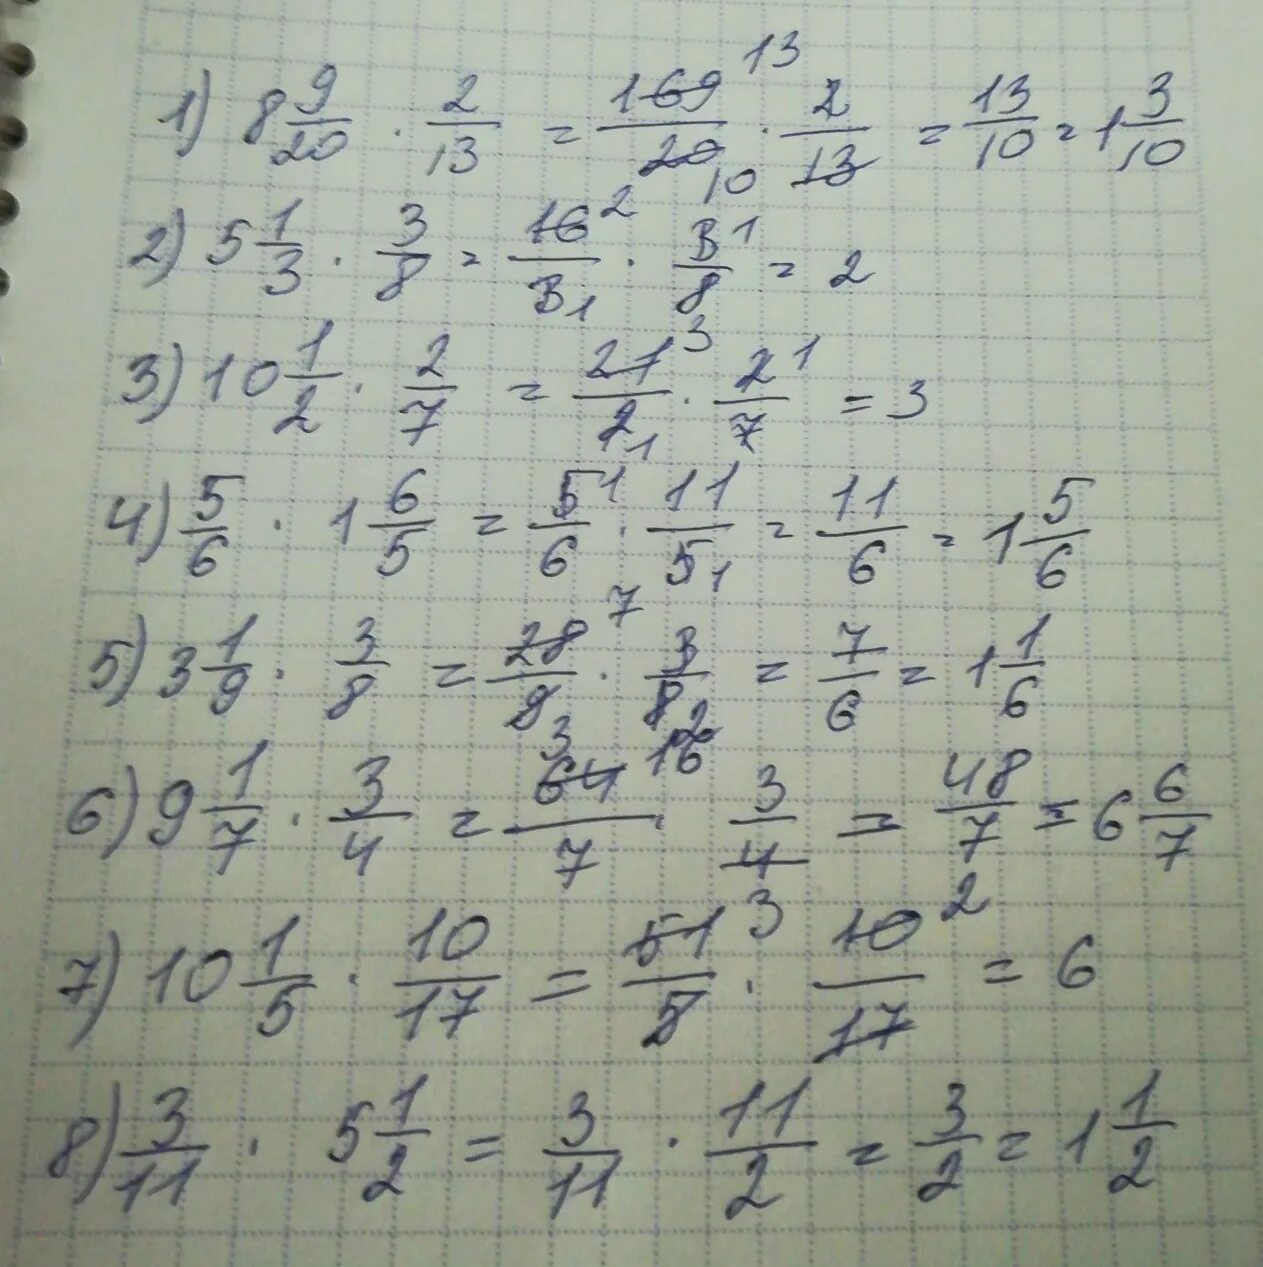 1) 8 9/20 · 2/13 = 169/20 13 10 · 2/13 = 13/10 = 1 3/10
2) 5 1/3 · 3/8 = 16/3 2 1 · 3/8 1 = 2
3) 10 1/2 · 2/7 = 21/2 3 1 · 2/7 1 = 3
4) 5/6 · 1 6/5 = 5/6 1 · 11/5 1 = 11/6 = 1 5/6
5) 3 1/9 · 3/8 = 28/9 7 3 · 3/8 2 = 7/6 = 1 1/6
6) 9 1/7 · 3/4 = 64/7 16 · 3/4 = 48/7 = 6 6/7
7) 10 1/5 · 10/17 = 51/5 3 · 10/17 2 = 6
8) 3/11 · 5 1/2 = 3/11 · 11/2 = 3/2 = 1 1/2